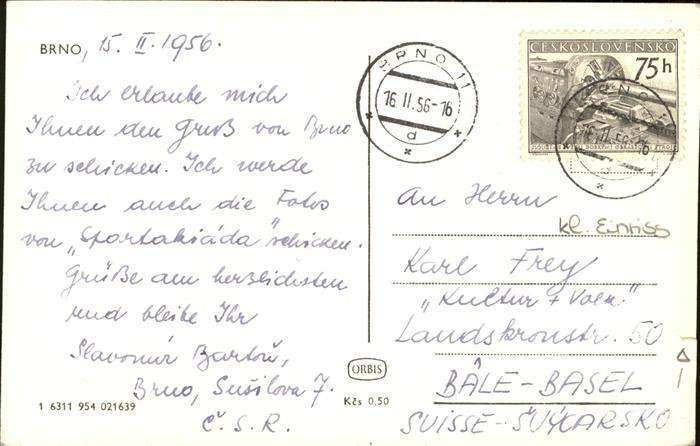 BRNO, 15. II. 1956.
Ich erlaube mich
Ihnen den Gruß von Brno
zu schicken. Ich werde
Ihnen auch die Fotos
von „Spartakiáda" schicken.
Grüße am herzlichsten
und bleibe Ihr
Slavomír Bartoň,
Brno, Sušilova 7.
Č. S. R.
1 6311 954 021639
ORBIS
Kčs 0,50
BRNO 11
16 II. 56-16
d
ČESKOSLOVENSKO
75 h
An Herrn
kl. Einriss
Karl Frey
„Kultur + Volk"
Landskronstr. 50
BÂLE-BASEL
SUISSE-ŠVÝCARSKO